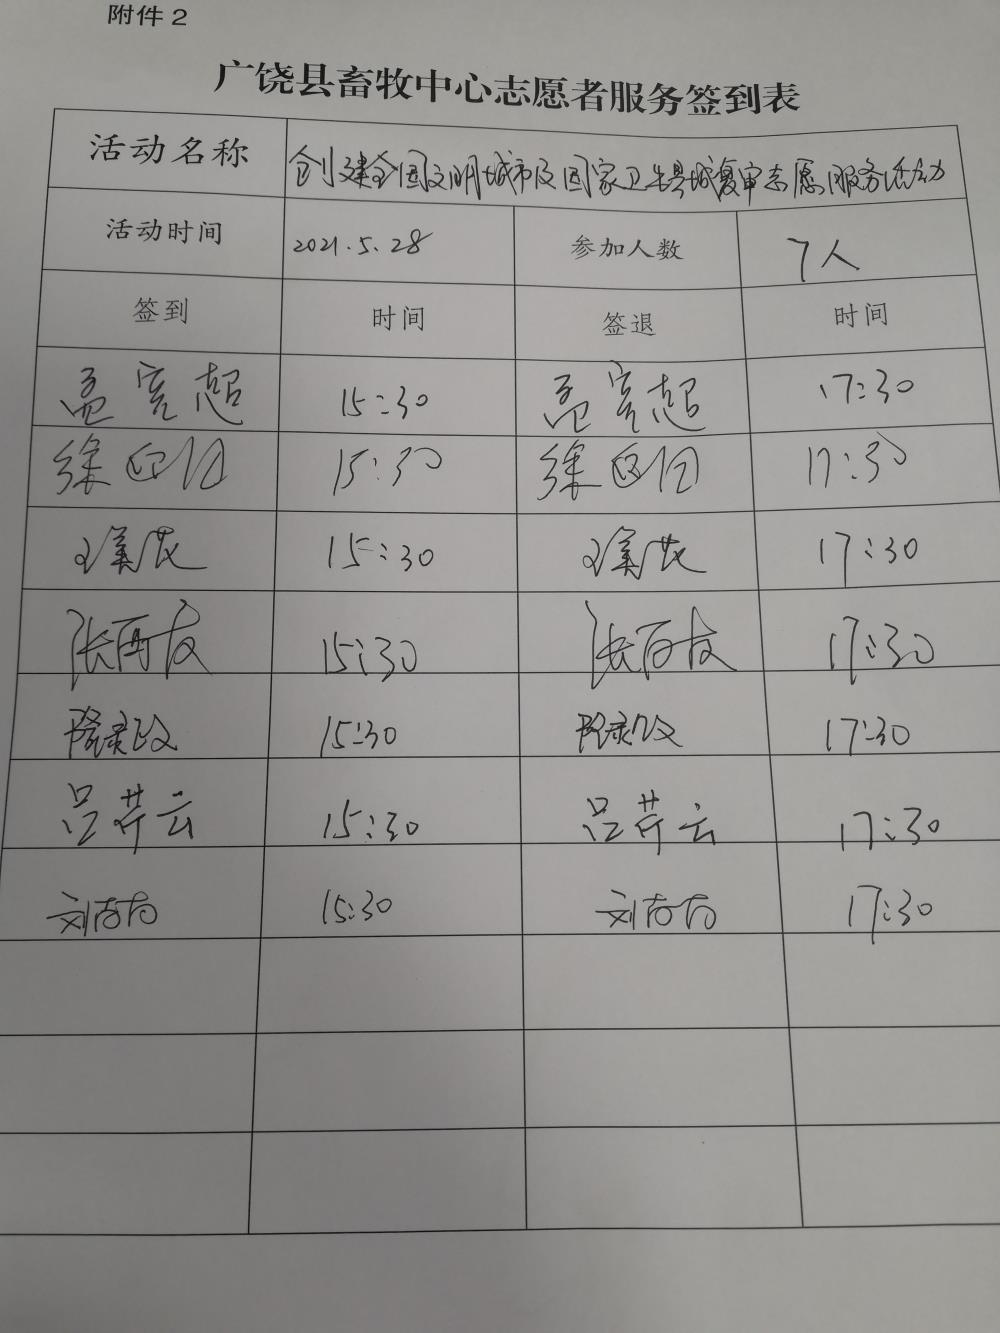 附件2
广饶县畜牧中心志愿者服务签到表
活动名称 创建全国文明城市及国家卫生县城复审志愿服务活动
活动时间 2021.5.28 参加人数 7人
签到 时间 签退 时间
孟宪超 15:30 孟宪超 17:30
徐 15:30 徐 17:30
王 15:30 王 17:30
张百友 15:30 张百友 17:30
隆录政 15:30 隆录政 17:30
吕芹云 15:30 吕芹云 17:30
刘 15:30 刘 17:30